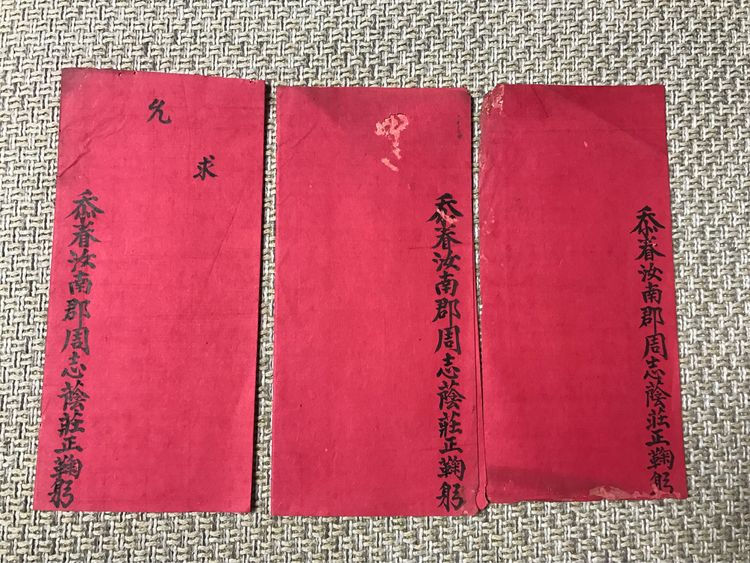 忝眷汝南郡周志蔭莊正鞠躬
忝眷汝南郡周志蔭莊正鞠躬
求
允
忝眷汝南郡周志蔭莊正鞠躬